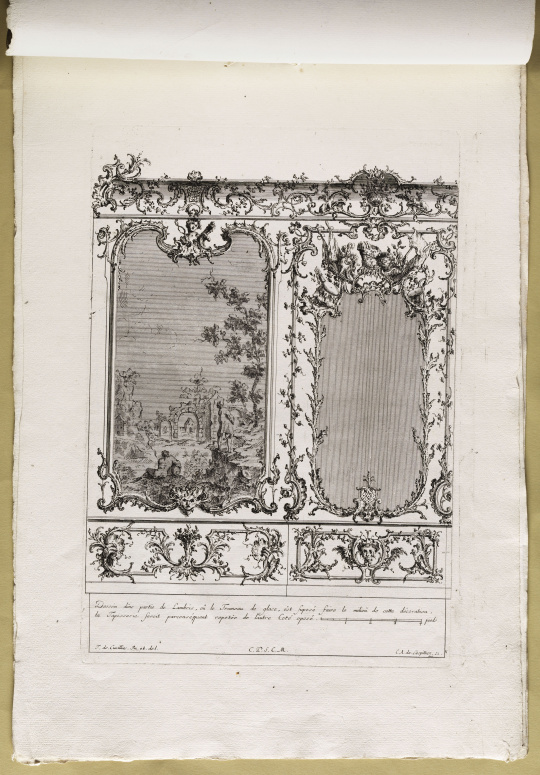 Dessein d'une partie de Lambris, où le Trumeau de glace, est suposé faire le milieu de cette décoration,
la Tapisserie seroit parconsequent repetée de l'autre Coté oposé. pieds
F. de Cuvilliés In. et del. C. P. S. C. M. C. A. de Lespilliez, sc.